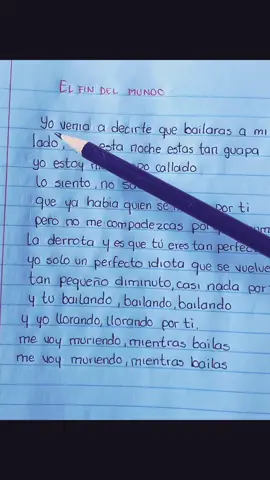 EL FIN DEL MUNDO
Yo venia a decirte que bailaras a mi
lado, esta noche estas tan guapa
yo estoy callado
lo siento, no
que ya habia quien se por ti
pero no me compadezcas
la derrota y es que tú eres tan
yo solo un perfecto idiota que se vuelve
tan pequeño diminuto, casi nada por
y tu bailando, bailando, bailando
y yo llorando, llorando por ti.
me voy muriendo, mientras bailas
me voy muriendo, mientras bailas